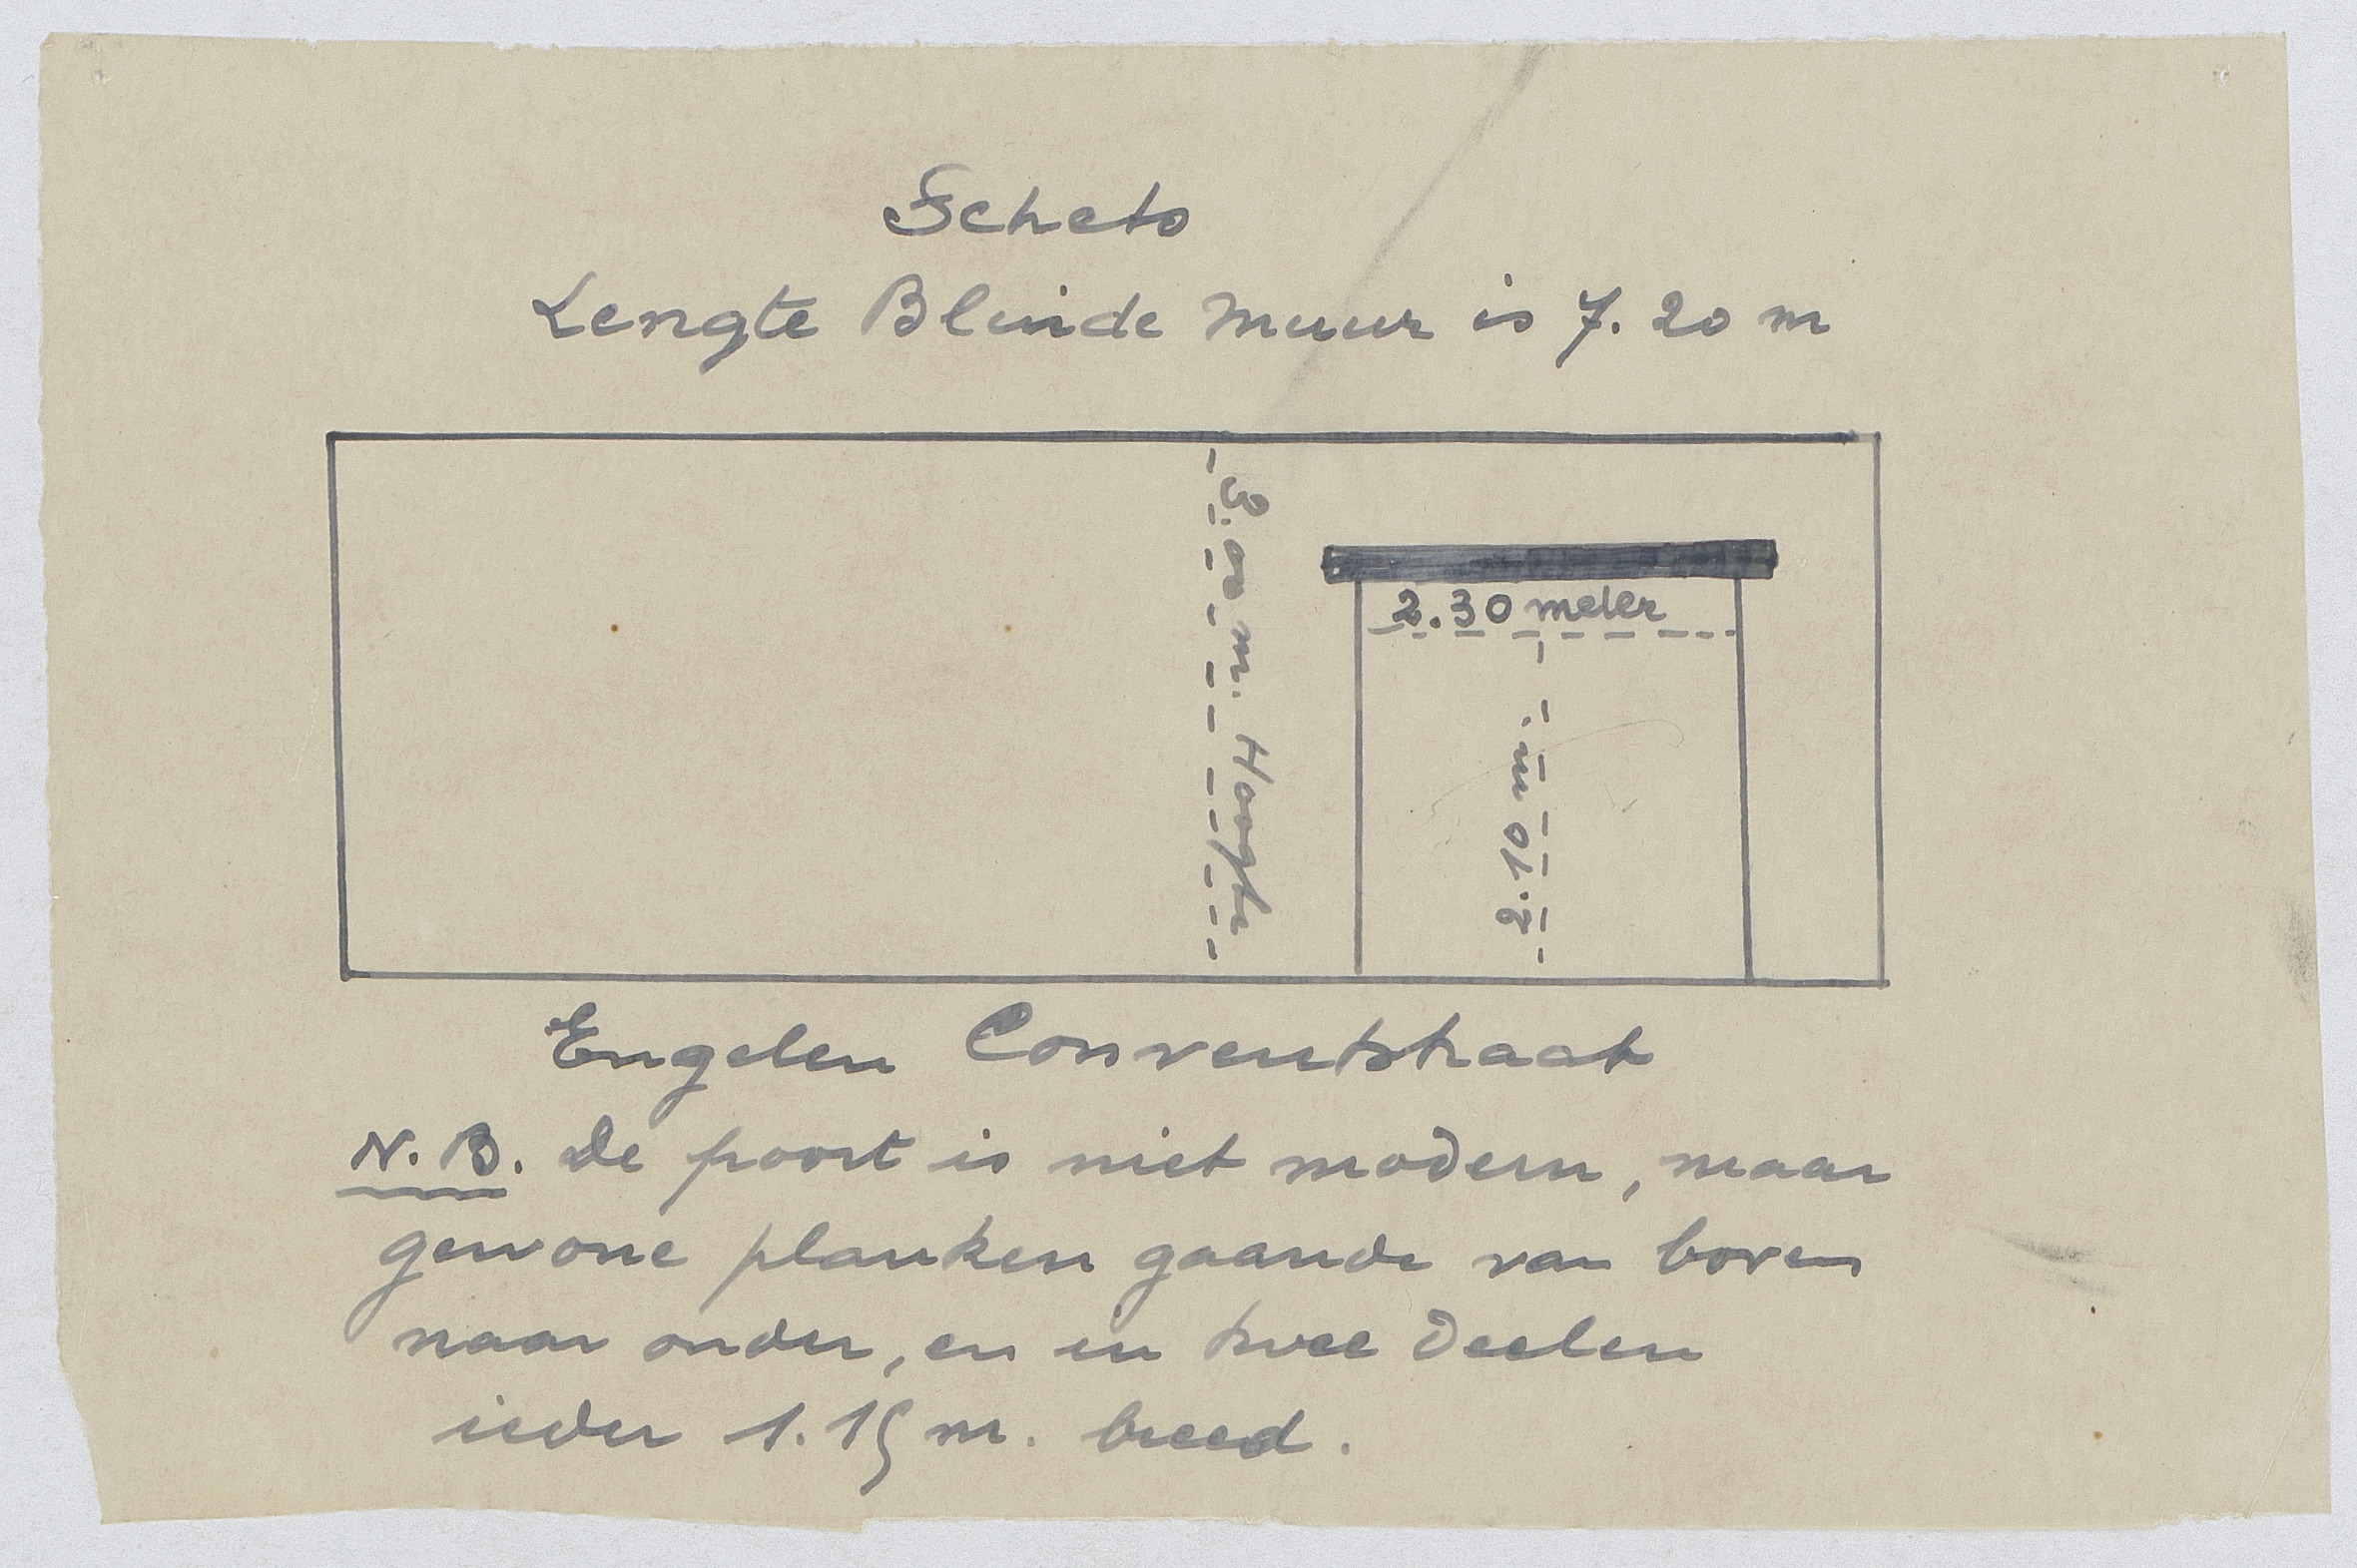 Schets
Lengte Blinde muur is 7.20 m
3.00 m. Hoogte
2.30 meter
2.10 m.
Engelen Conventstraat
N.B. De poort is niet modern, maar
gewone planken gaande van boven
naar onder, en in twee Deelen
ieder 1.15 m. breed.